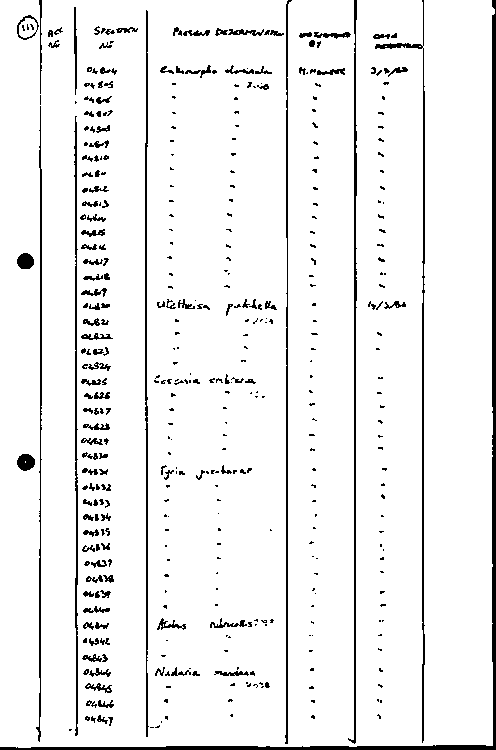 111
ACC NO SPECIMEN NO PRESENT DETERMINATION DETERMINED BY DATE DETERMINED
04804 dominula 3/2/80
04805 " " " "
04806 " " " "
04807 " " " "
04808 " " " "
04809 " " " "
04810 " " " "
04811 " " " "
04812 " " " "
04813 " " " "
04814 " " " "
04815 " " " "
04816 " " " "
04817 " " " "
04818 " " " "
04819 " " " "
04820 Utetheisa pulchella "
04821 " " " "
04822 " " " "
04823 " " " "
04824 " " " "
04825 Coscinia cribraria " "
04826 " " " "
04827 " " " "
04828 " " " "
04829 " " " "
04830 " " " "
04831 Tyria jacobaeae " "
04832 " " " "
04833 " " " "
04834 " " " "
04835 " " " "
04836 " " " "
04837 " " " "
04838 " " " "
04839 " " " "
04840 " " " "
04841 Atolmis rubricollis " "
04842 " " " "
04843 " " " "
04844 Nudaria mundana " "
04845 " " " "
04846 " " " "
04847 " " " "